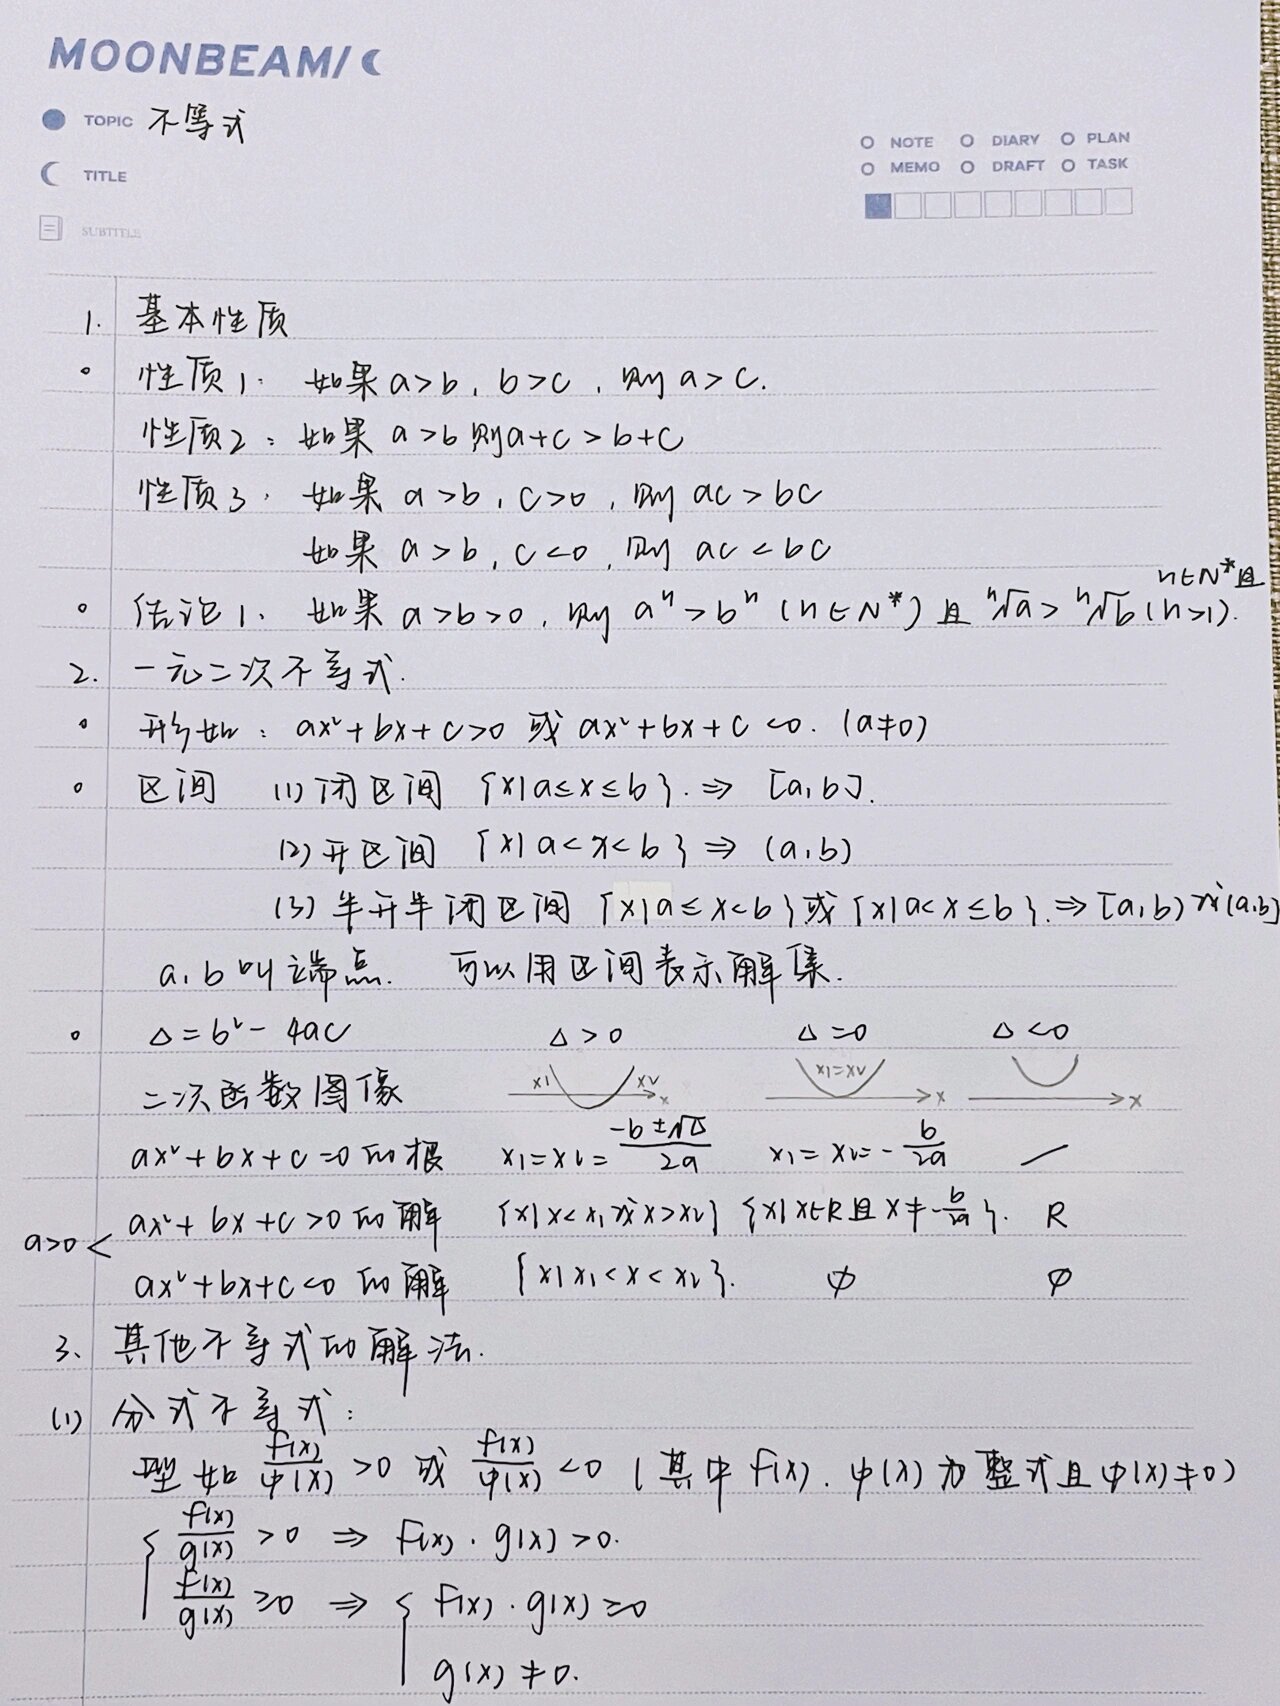 MOONBEAM/
TOPIC 不等式
NOTE DIARY PLAN
TITLE
MEMO DRAFT TASK
SUBTITLE
1. 基本性质
性质1: 如果 a>b, b>c, 则 a>c.
性质2: 如果 a>b 则a+c>b+c
性质3: 如果 a>b, c>0, 则 ac>bc
如果 a>b, c<0, 则 ac<bc
n∈N*且
结论1. 如果 a>b>0, 则 aⁿ>bⁿ (n∈N*) 且 ⁿ√a > ⁿ√b (n>1).
2. 一元二次不等式.
形如: ax²+bx+c>0 或 ax²+bx+c<0. (a≠0)
区间 (1) 闭区间 {x|a≤x≤b}. ⇒ [a,b].
(2) 开区间 {x|a<x<b} ⇒ (a,b)
(3) 半开半闭区间 {x|a≤x<b}或{x|a<x≤b}. ⇒ [a,b)或(a,b]
a,b叫端点. 可以用区间表示解集.
Δ=b²-4ac Δ>0 Δ=0 Δ<0
二次函数图像 x1 x2 x x1=x2 x x
ax²+bx+c=0的根 x1=x2=(-b±√Δ)/2a x1=x2=-b/2a /
ax²+bx+c>0的解 {x|x<x1或x>x2} {x|x∈R且x≠-b/a}. R
a>0 <
ax²+bx+c<0的解 {x|x1<x<x2}. φ φ
3、其他不等式的解法.
(1) 分式不等式:
型如 f(x)/φ(x) >0 或 f(x)/φ(x) <0 (其中 f(x). φ(x) 为整式且φ(x)≠0)
{ f(x)/g(x) >0 ⇒ f(x)·g(x)>0.
f(x)/g(x) ≥0 ⇒ { f(x)·g(x)≥0
g(x)≠0.